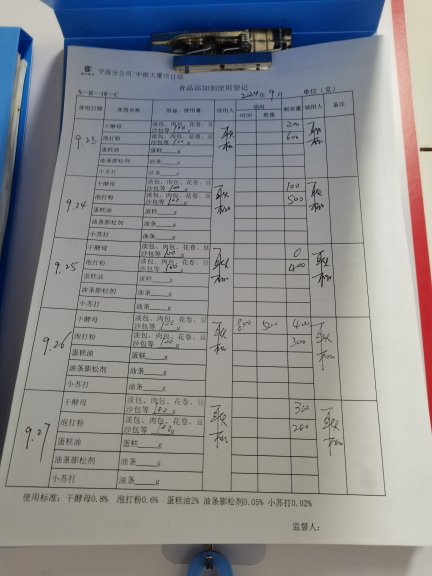 宁波分公司/中银大厦项目部
食品添加剂使用登记
S-R-18-C 2024年9月 单位(克)
使用日期 使用名称 用途、使用量 使用人 领用 时间 数量 剩余量 领用人 备注
9.25 干酵母 淡包、肉包、花卷、豆沙包等 100 g 200
泡打粉 淡包、肉包、花卷、豆沙包等 100 g 600
蛋糕油 蛋糕____g
油条膨松剂 油条____g
小苏打 油条____g
9.24 干酵母 淡包、肉包、花卷、豆沙包等 100 g 100
泡打粉 淡包、肉包、花卷、豆沙包等 100 g 500
蛋糕油 蛋糕____g
油条膨松剂 油条____g
小苏打 油条____g
9.25 干酵母 淡包、肉包、花卷、豆沙包等 100 g 0
泡打粉 淡包、肉包、花卷、豆沙包等 100 g 400
蛋糕油 蛋糕____g
油条膨松剂 油条____g
小苏打 油条____g
9.26 干酵母 淡包、肉包、花卷、豆沙包等 100 g 500 400
泡打粉 淡包、肉包、花卷、豆沙包等 100 g 300
蛋糕油 蛋糕____g
油条膨松剂 油条____g
小苏打 油条____g
9.27 干酵母 淡包、肉包、花卷、豆沙包等 100 g 300
泡打粉 淡包、肉包、花卷、豆沙包等 100 g 200
蛋糕油 蛋糕____g
油条膨松剂 油条____g
小苏打 油条____g
使用标准：干酵母0.8% 泡打粉0.6% 蛋糕油2% 油条膨松剂0.05% 小苏打0.02%
监督人：